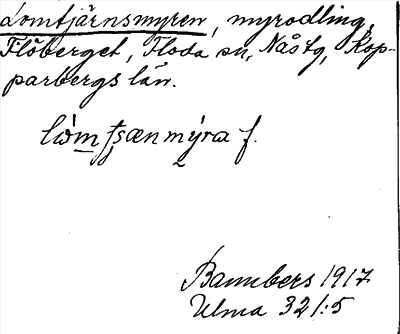 Lomtjärnsmyren, myrodling,
Flöberget, Floda sn, Nås tg, Kop-
parbergs län.
lòmʈʂænmýra f.
Bannbers 1917
Ulma 321:5